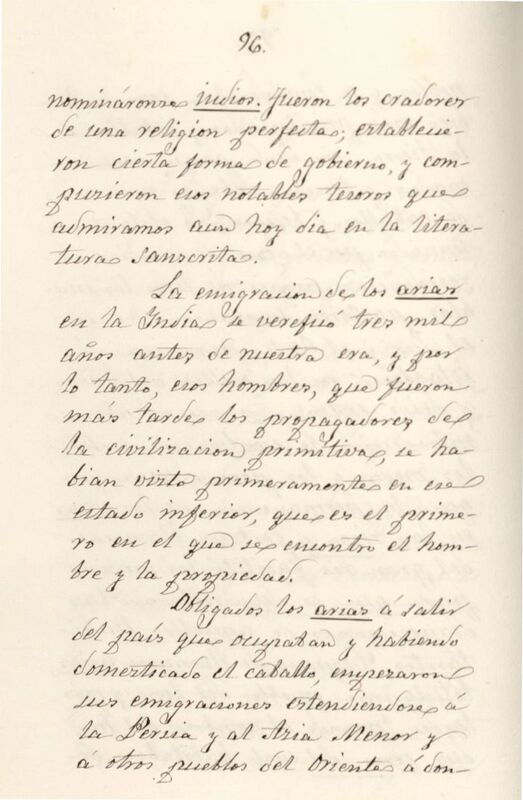 96.
nomináronse indios. Fueron los cradores
de una religion perfecta; establecie-
ron cierta forma de gobierno, y com-
puzieron esos notables tesoros que
admiramos aun hoy dia en la litera-
tura sanscrita.
La emigracion de los arias
en la India se vereficó tres mil
años antes de nuestra era, y por
lo tanto, esos hombres, que fueron
más tarde los propagadores de
la civilizacion primitiva, se ha-
bian visto primeramente en ese
estado inferior, que es el prime-
ro en el que se encontro el hom-
bre y la propiedad.
Obligados los arias á salir
del país que ocupaban y habiendo
domesticado el caballo, empezaron
sus emigraciones estendiendose á
la Persia y al Asia Menor y
á otros pueblos del Oriente á don-